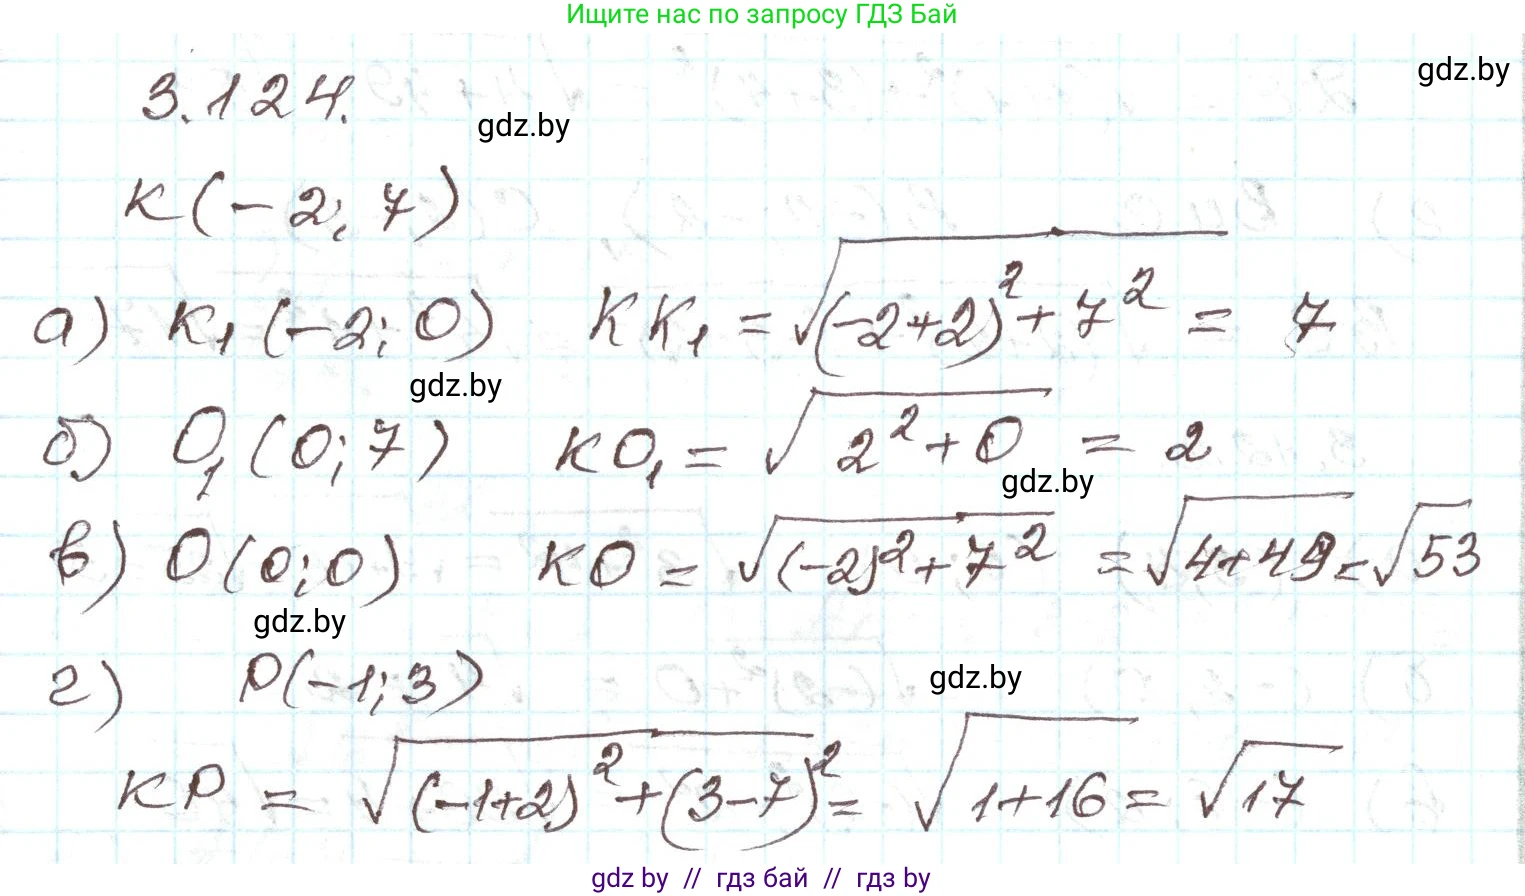 Ищите нас по запросу ГДЗ Бай
gdz.by
3.124.
gdz.by
K(-2; 7)
а) K₁(-2; 0) KK₁ = √((-2+2)² + 7²) = 7
gdz.by
б) O₁(0; 7) KO₁ = √(2² + 0) = 2
gdz.by
в) O(0; 0) KO = √((-2)² + 7²) = √(4+49) = √53
gdz.by
г) P(-1; 3)
gdz.by
KP = √((-1+2)² + (3-7)²) = √(1+16) = √17
gdz by // гдз бай // гдз by